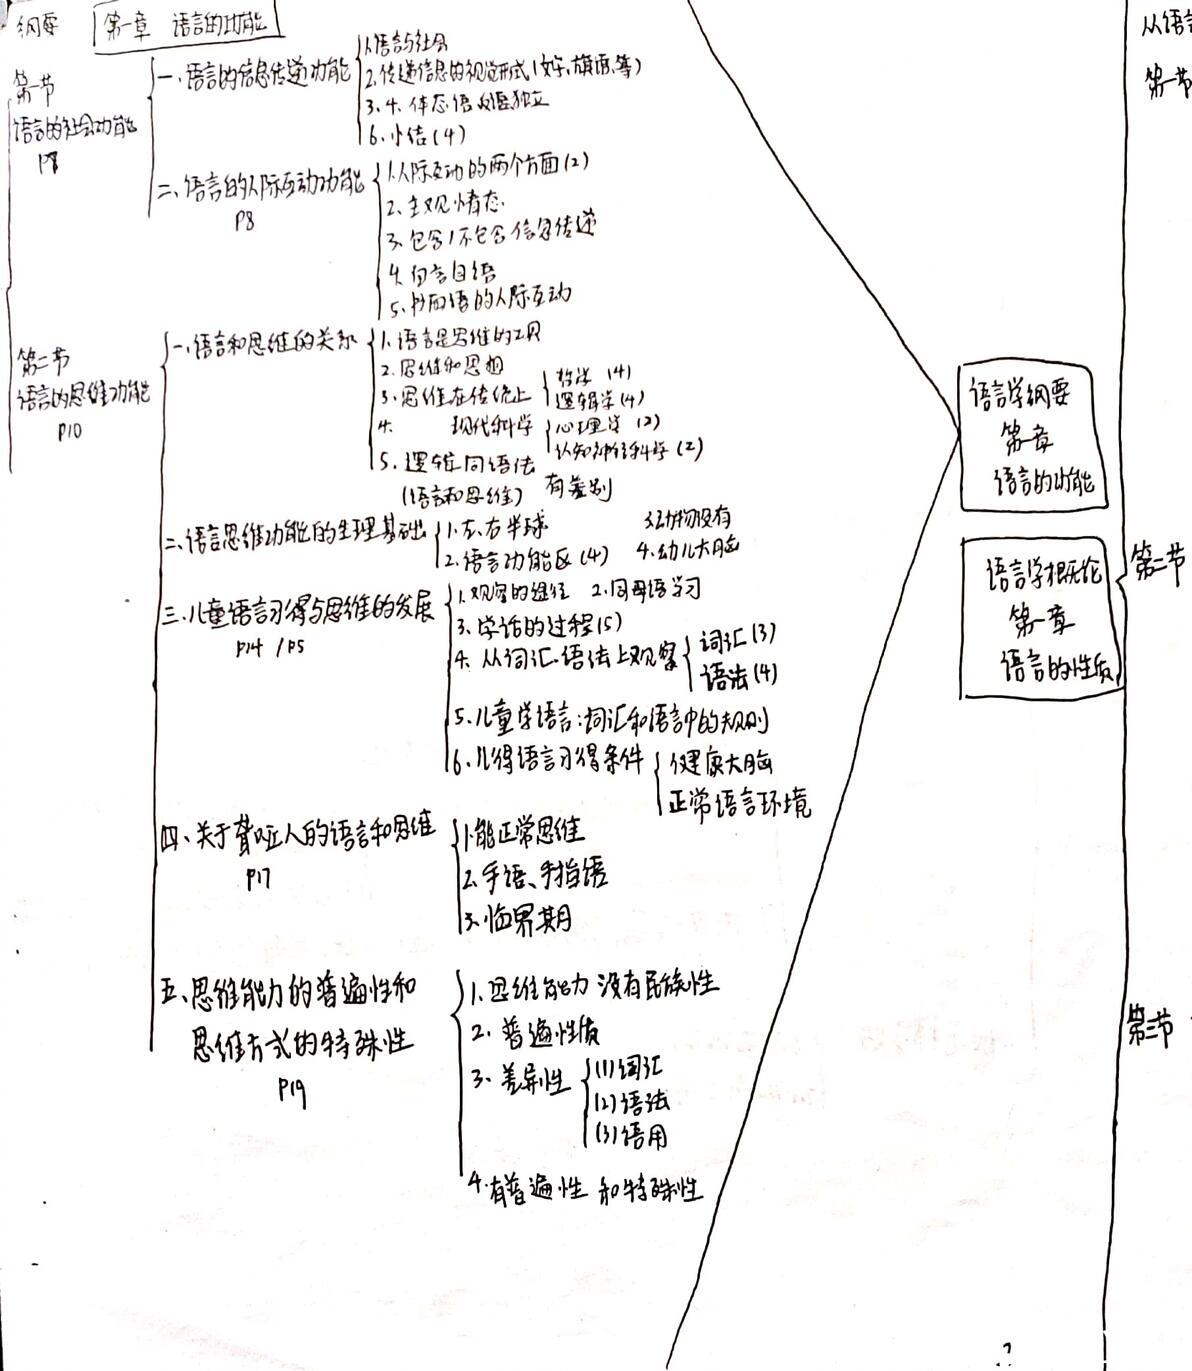 纲要 第一章 语言的功能
第一节
语言的社会功能
P8
一、语言的信息传递功能
1.语言与社会
2.传递信息的视觉形式(文字、旗语、等)
3.4.体态语 独立
6.小结(4)
二、语言的人际互动功能
P8
1.人际互动的两个方面(2)
2.主观情态.
3.包含/不包含信息传递
4.自言自语
5.书面语的人际互动
第二节
语言的思维功能
P10
一、语言和思维的关系
1.语言是思维的工具
2.思维和思想
3.思维在传统上
哲学(4)
逻辑学(4)
4. 现代科学
心理学(2)
认知神经科学(2)
5.逻辑同语法
(语言和思维) 有差别
二、语言思维功能的生理基础
1.左、右半球 3.动物没有
2.语言功能区(4) 4.幼儿大脑
三、儿童语言习得与思维的发展
P14 /P5
1.观察的途径 2.同母语学习
3.学话的过程(5)
4.从词汇.语法上观察
词汇(3)
语法(4)
5.儿童学语言:词汇和语言中的规则
6.儿得语言习得条件
健康大脑
正常语言环境
四、关于聋哑人的语言和思维
P17
1.能正常思维
2.手语、手指语
3.临界期
五、思维能力的普遍性和
思维方式的特殊性
P19
1.思维能力没有民族性
2.普遍性质
3.差异性
(1)词汇
(2)语法
(3)语用
4.有普遍性和特殊性
语言学纲要
第一章
语言的功能
语言学概论
第一章
语言的性质
从语言
第一节
第二节
第三节